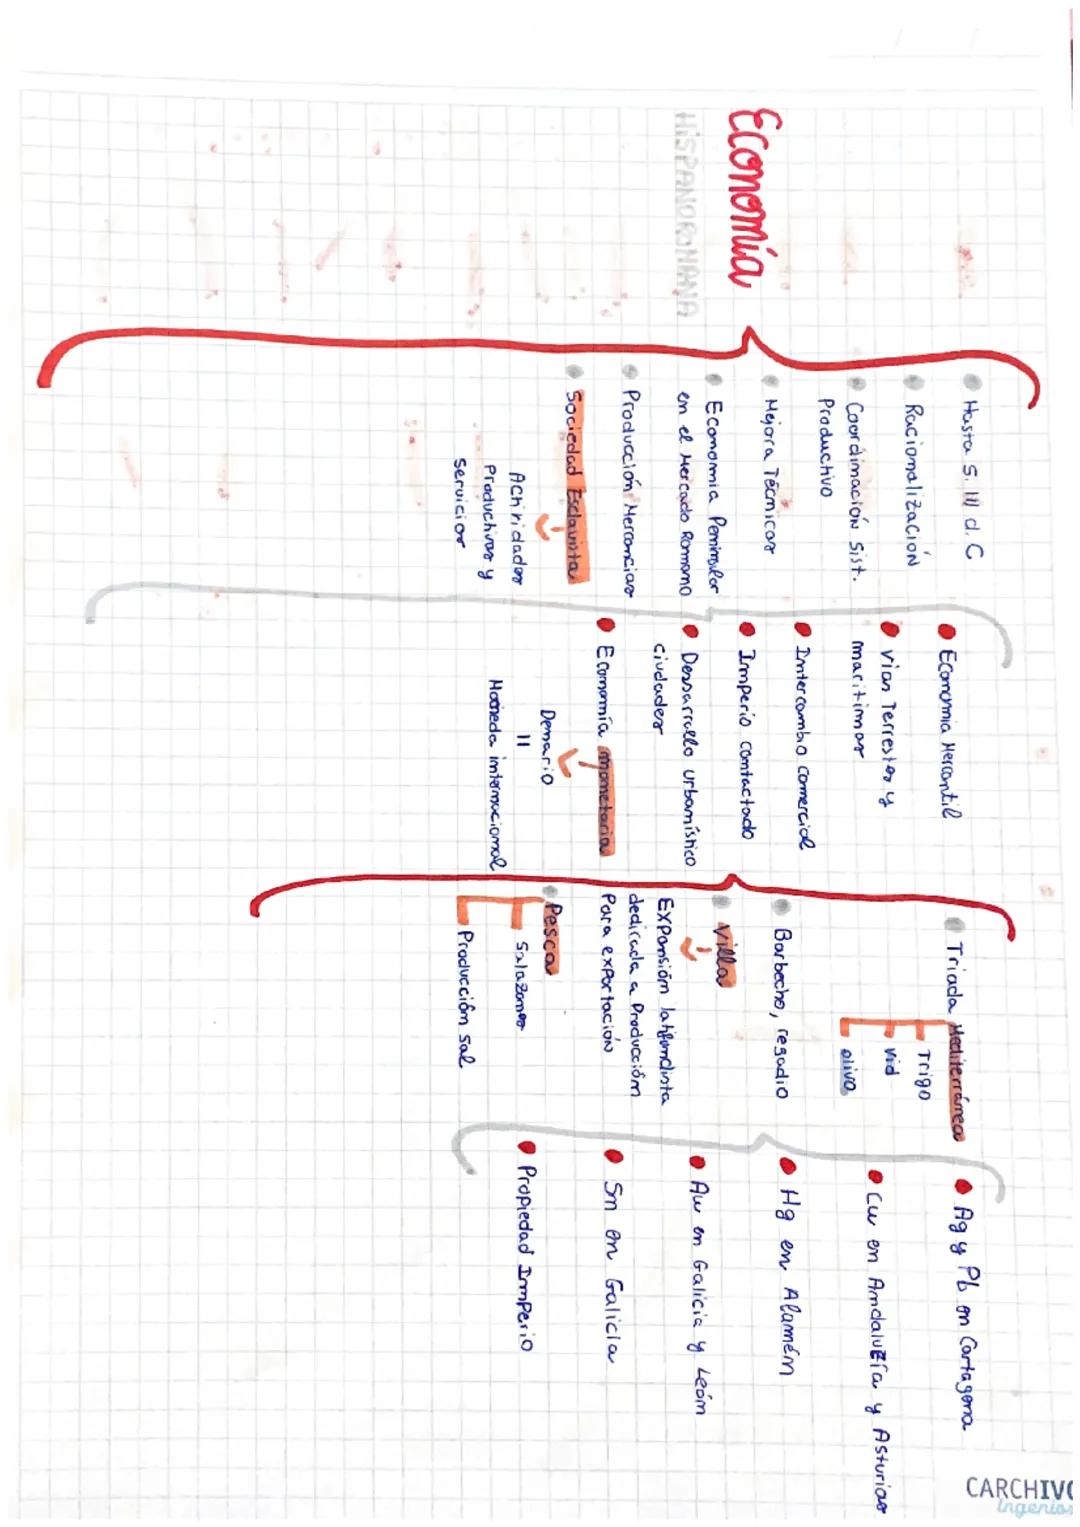 Economía
HISPANORROMANA
Hasta S. III d. C
Racionalización
Coordinación Sist.
Productivo
Mejora Técnicas
Economia Peninsular
en el Mercado Romano
Producción Mercancias
Sociedad Esclavista
Actividades
Productivas y
servicios
Economia Mercantil
vias Terrestes y
maritimas
Intercambio comercial
Imperio contactado
Dessarrollo urbanístico
ciudades
Economía monetaria
Denario
=
Moneda internacional
Triada Mediterránea
Trigo
vid
olivo
Barbecho, regadio
Villa
Expansión latifundista
dedicada a Producción
Para exportación
Pesca
Salazones
Producción Sal
Ag y Pb en Cartagena
Cu en Andalucía y Asturias
Hg en Alamén
Au en Galicia y León
Sn en Galicia
Propiedad Imperio
CARCHIVO
Ingenios